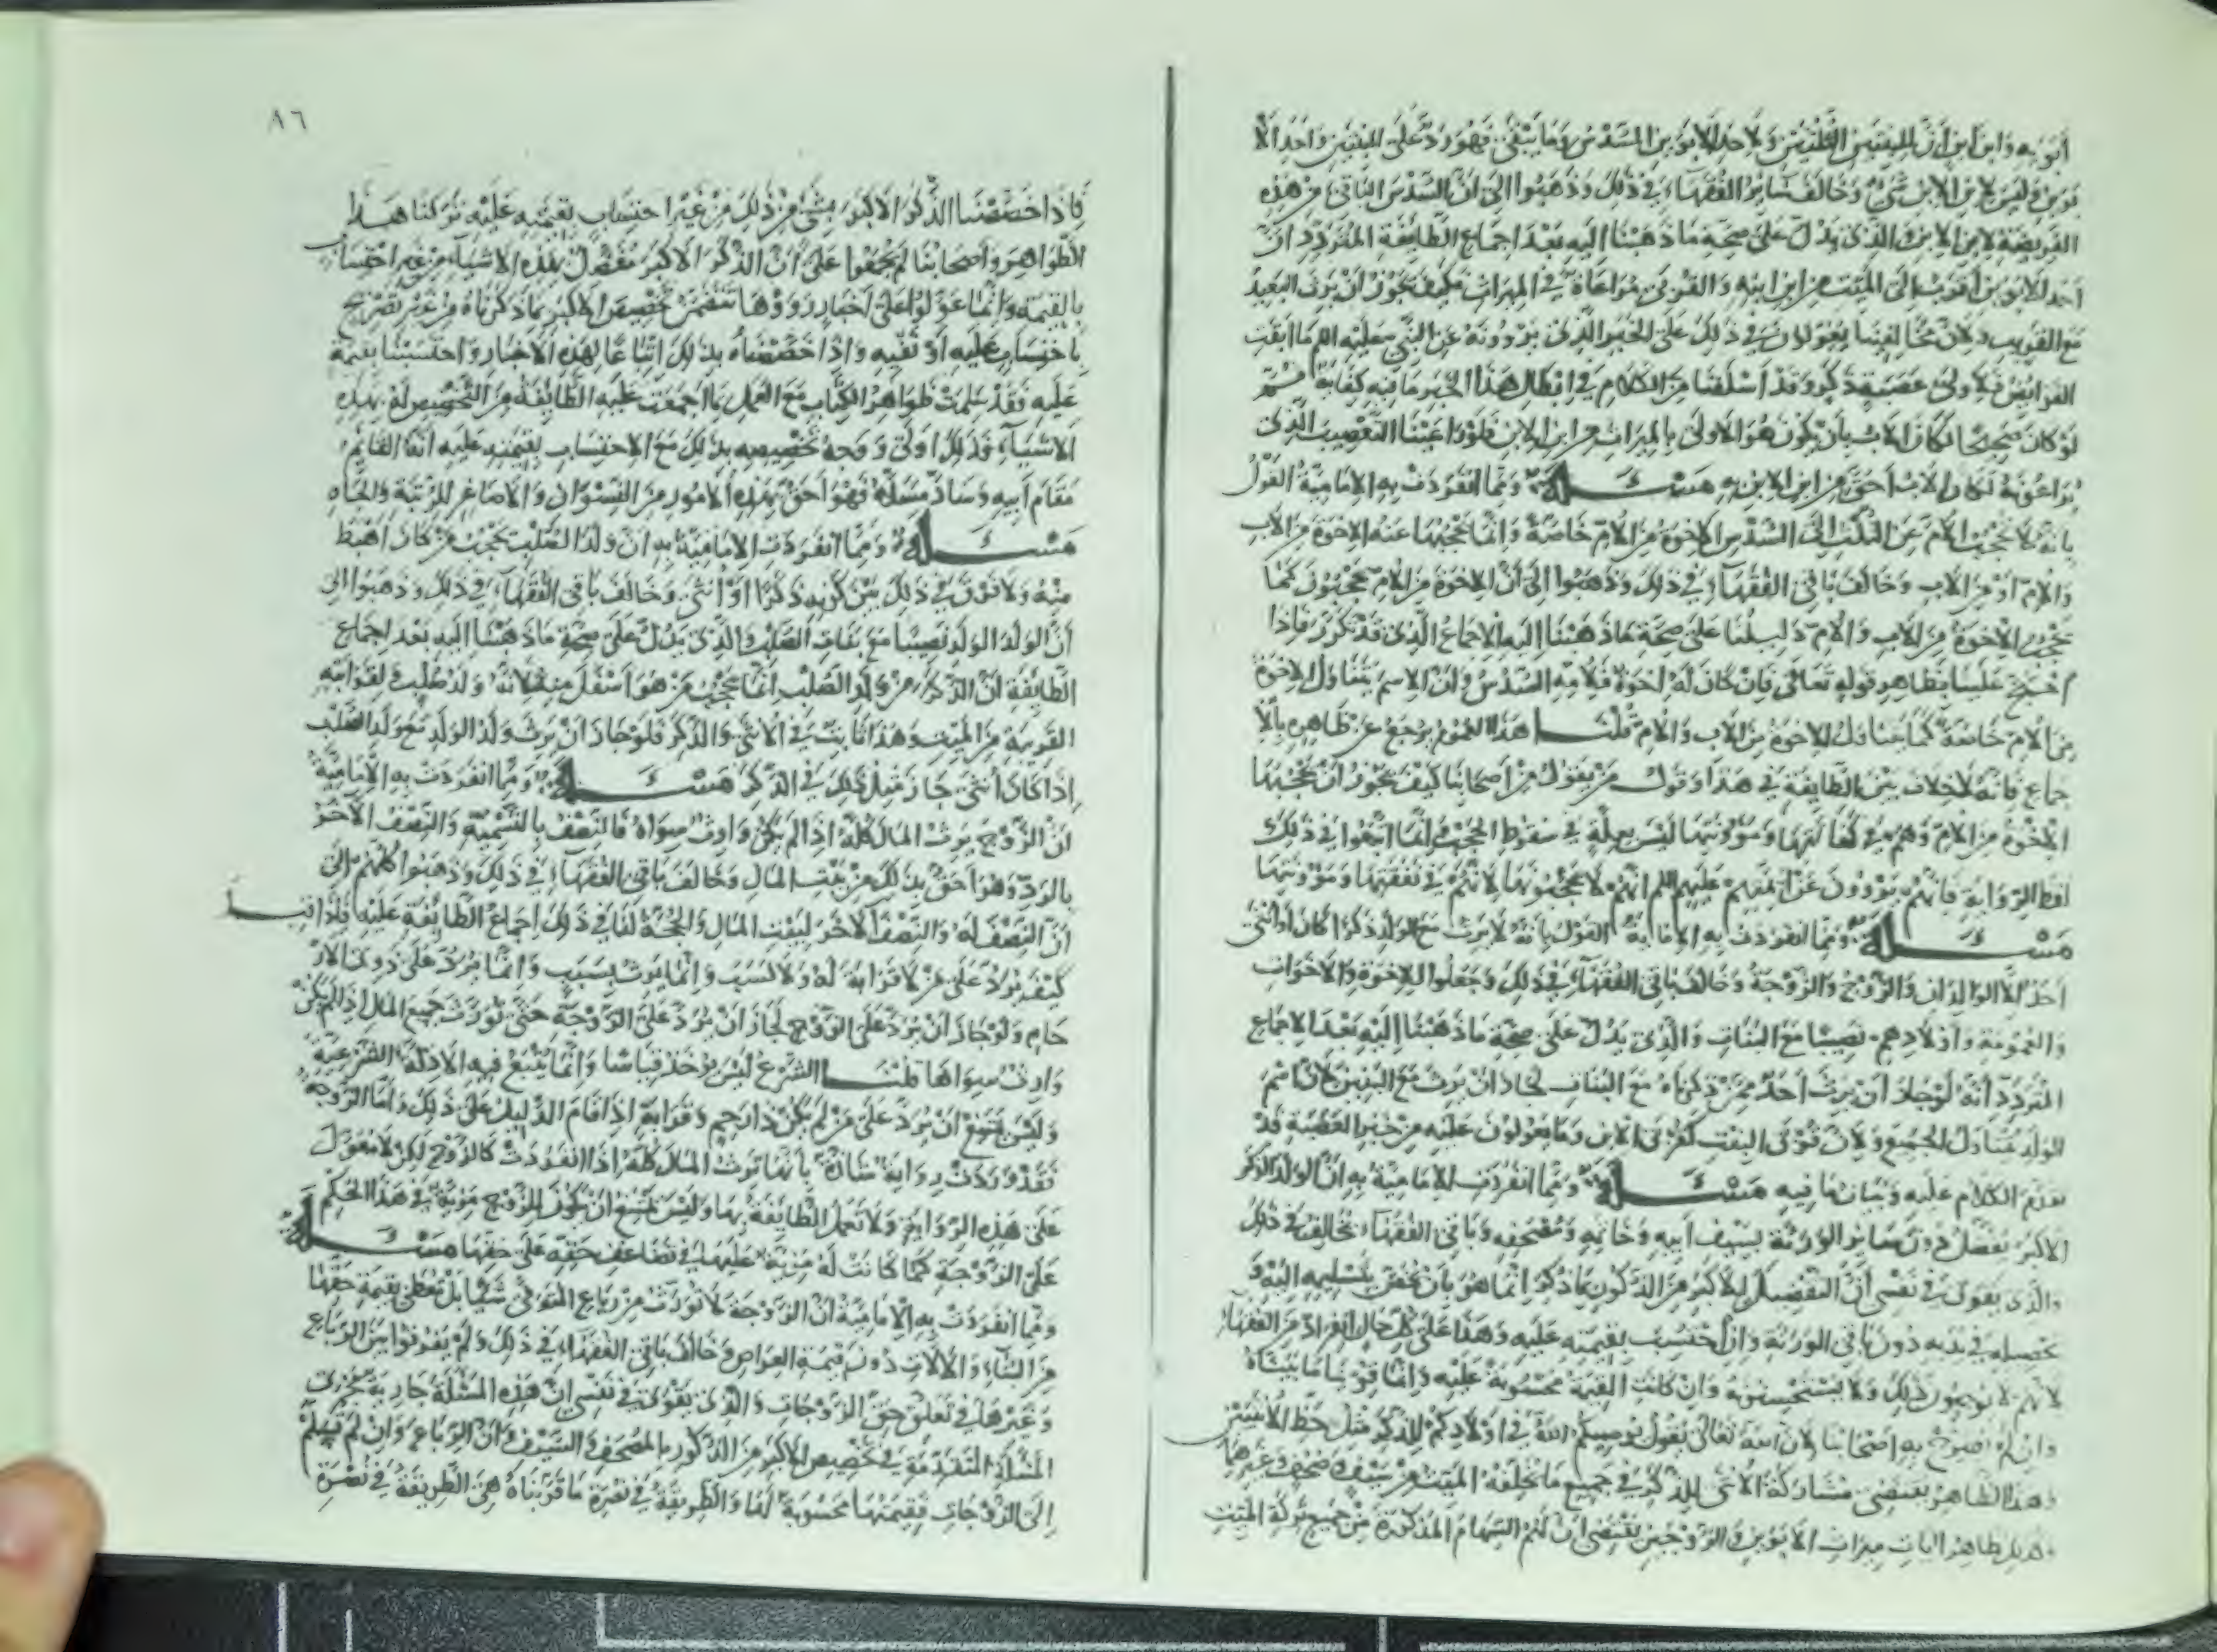 أبويه وابن ابن أنّ للبنتين الثلثين ولأحد الأبوين السدس وما يبقى فهو ردّ على البنتين وأحد الأ
بوين وليس لابن الابن شيء وخالف سائر الفقهاء في ذلك وذهبوا إلى أنّ السدس الباقي من هذه
الفريضة لابن الابن والذي يدلّ على صحة ما ذهبنا إليه بعد اجماع الطايفة المتردد أنّ
أحد الأبوين أقرب إلى الميّت من ابن ابنه والقربى مراعاة في الميراث فكيف يجوز أن يرث البعيد
مع القريب ولأنّ مخالفينا يعولون في ذلك على الخبر الذي يروونه عن النبي عليه السلم ما أبقت
الفرايض فلأولى عصبة ذكر وقد أسلفنا من الكلام في إبطال هذا الخبر ما فيه كفاية ثم
لو كان صحيحًا لكان الأب بأن يكون هو الأولى بالميراث من ابن الابن فلو راعينا التعصيب الذي
يراعونه لكان الأب أحق من ابن الابن به مســئلة ومما انفردت به الإمامية القول
بأنه لا يحجب الأم عن الثلث إلى السدس الإخوة من الأم خاصّة وإنما يحجبها عنه الإخوة من الأب
والأم أو من الأب وخالف باقي الفقهاء في ذلك وذهبوا إلى أن الإخوة من الأم يحجبون كما
يحجب الإخوة من الأب والأم دليلنا على صحة ما ذهبنا إليه الإجماع الذي قد تكرر فإذا
احتج علينا بظاهر قوله تعالى فإن كان له إخوة فلأمه السدس وأن الاسم يتناول الإخوة
من الأم خاصة كما يتناول الإخوة من الأب والأم قلنــا هذا العموم يرجع عن ظاهره بالإ
جماع فإنه لا خلاف بين الطايفة في هذا وقول من يقول من أصحابنا كيف يجوز أن يحجبها
الإخوة من الأم وهم في كفالتها ومؤونتها ليس بعلّة في سقوط الحجب وإنما اتبعوا في ذلك
لفظ الرواية فإنهم يروون عن أيمتهم عليهم السلم أنهم لا يحجبونها لأنهم في نفقتها ومؤونتها
مســئلة ومما انفردت به الإمامية القول بأنه لا يرث مع الولد ذكرًا كان أو أنثى
أحد إلا الوالدان والزوج والزوجة وخالف باقي الفقهاء في ذلك وجعلوا للإخوة والأخوات
والعمومة وأولادهم نصيبًا مع البنات والذي يدلّ على صحة ما ذهبنا إليه بعد الإجماع
المتردد أنه لو جاز أن يرث أحد ممن ذكرناه مع البنات لجاز أن يرث مع البنين لأن اسم
الولد يتناول الجميع ولأن قربى البنت كقربى الابن وما يعولون عليه من خبر العصبة قد
تقدم الكلام عليه وبيان ما فيه مســئلة ومما انفردت الإمامية به أن الولد الذكر
الأكبر يفضل دون سائر الورثة بسيف أبيه وخاتمه ومصحفه وباقي الفقهاء يخالف في ذلك
والذي يقوى في نفسي أن التفضيل للأكبر من الذكور بما ذكر إنما هو بأن يخص بتسليمه إليه و
تحصيله في يديه دون باقي الورثة وإن احتسب بقيمته عليه وهذا على كل حال انفراد من الفقهاء
لأنهم لا يوجبون ذلك ولا يستحسنونه وإن كانت القيمة محسوبة عليه وإنما قوينا ما بيناه
وإن لم يصرح به أصحابنا لأن الله تعالى يقول يوصيكم الله في أولادكم للذكر مثل حظ الأنثيين
وهذا الظاهر يقتضي مشاركة الأنثى للذكر في جميع ما يخلفه الميت من سيف ومصحف وغيرهما
وكذلك ظاهر آيات ميراث الأبوين والزوجين يقتضي أن لهم السهام المذكورة من جميع تركة الميت
٨٦
فإذا خصصنا الذكر الأكبر بشيء من ذلك من غير احتساب بقيمته عليه تركنا هــذا
الظواهر وأصحابنا لم يجمعوا على أن الذكر الأكبر مفضل بهذه الأشياء من غير احتساب
بالقيمة وإنما عولوا على أخبار رووها تتضمن تخصيص الأكبر بما ذكرناه من غير تصريح
باحتساب عليه أو نفيه وإذا خصصناه بذلك اتباعًا لهذه الأخبار واحتسبنا بقيمة
عليه فقد سلمت ظواهر الكتاب مع العمل بما اجمعت عليه الطائفة من التخصيص له بهذه
الأشياء فذلك أولى ووجه تخصيصه بذلك مع الاحتساب بقيمته عليه أنه القائم
مقام أبيه وسادّ مسدّه فهو أحق بهذه الأمور من النسوان والأصاغر للرتبة والجاه
مســئلة ومما انفردت الإمامية به أن ولد الصلب يحجب من كان أهبط
منه ولا فرق في ذلك بين كونه ذكرًا أو أنثى وخالف باقي الفقهاء في ذلك وذهبوا إلى
أن لولد الولد نصيبًا مع بنات الصلب والذي يدل على صحة ما ذهبنا إليه بعد إجماع
الطايفة أن الذكر من ولد الصلب إنما يحجب من هو أسفل منه لأنه ولد صلب ولقرابته
القريبة من الميت وهذا ثابت في الأنثى والذكر فلو جاز أن يرث ولد الولد مع ولد الصلب
إذا كان أنثى جاز مثل ذلك في الذكر مســئلة ومما انفردت به الإمامية
أن الزوج يرث المال كله إذا لم يكن وارث سواه فالنصف بالتسمية والنصف الآخر
بالردّ وهو أحق بذلك من بيت المال وخالف باقي الفقهاء في ذلك وذهبوا كلهم إلى
أن النصف له والنصف الآخر لبيت المال والحجة لنا في ذلك إجماع الطايفة عليه فإذا قيــل
كيف يرد على من لا قرابة له ولا نسب وإنما يرث بسبب وإنما يرد على ذوي الأر
حام ولو جاز أن يرد على الزوج لجاز أن يرد على الزوجة حتى تورث جميع المال إذا لم يكن
وارث سواها قلنــا الشرع ليس يؤخذ قياسًا وإنما يتبع فيه الأدلة الشرعية
وليس يمتنع أن يرد على من لم يكن ذا رحم وقرابة إذا قام الدليل على ذلك وأما الزوجة
فقد وردت رواية شاذة بأنها ترث المال كله إذا انفردت كالزوج لكن لا معول
على هذه الرواية ولا تعمل الطايفة بها وليس يمتنع أن يكون للزوج مزية في هذا الحكم
على الزوجة كما كانت له مزية عليها في تضاعف حقه على حقها مســئلة
ومما انفردت به الإمامية أن الزوجة لا تورث من رباع المتوفى شيئًا بل تعطى بقيمة حقها
من البناء والآلات دون قيمة العراص وخالف باقي الفقهاء في ذلك ولم يفرقوا بين الرباع
وغيرها في تعلق حق الزوجات والذي يقوى في نفسي أن هذه المسئلة جارية مجرى
المسئلة المتقدمة في تخصيص الأكبر من الذكور بالمصحف والسيف وأن الرباع وإن لم تسلم
إلى الزوجات فقيمتها محسوبة لها والطريقة في نصرة ما قويناه هي الطريقة في نصرة